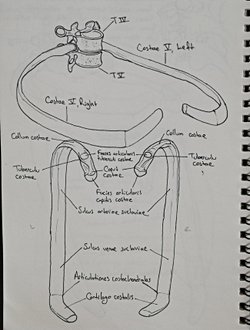 T IV
Costae V, Left
T V
Costae V, Right
Collum costae
Collum costae
Facies articularis
tuberculi costae
Tuberculum
costae
Tuberculum
costae
Caput
costae
Facies articularis
capitis costae
Sulcus arteriae subclaviae
Sulcus venae subclaviae
Articulationes costochondrales
Cartilago costalis